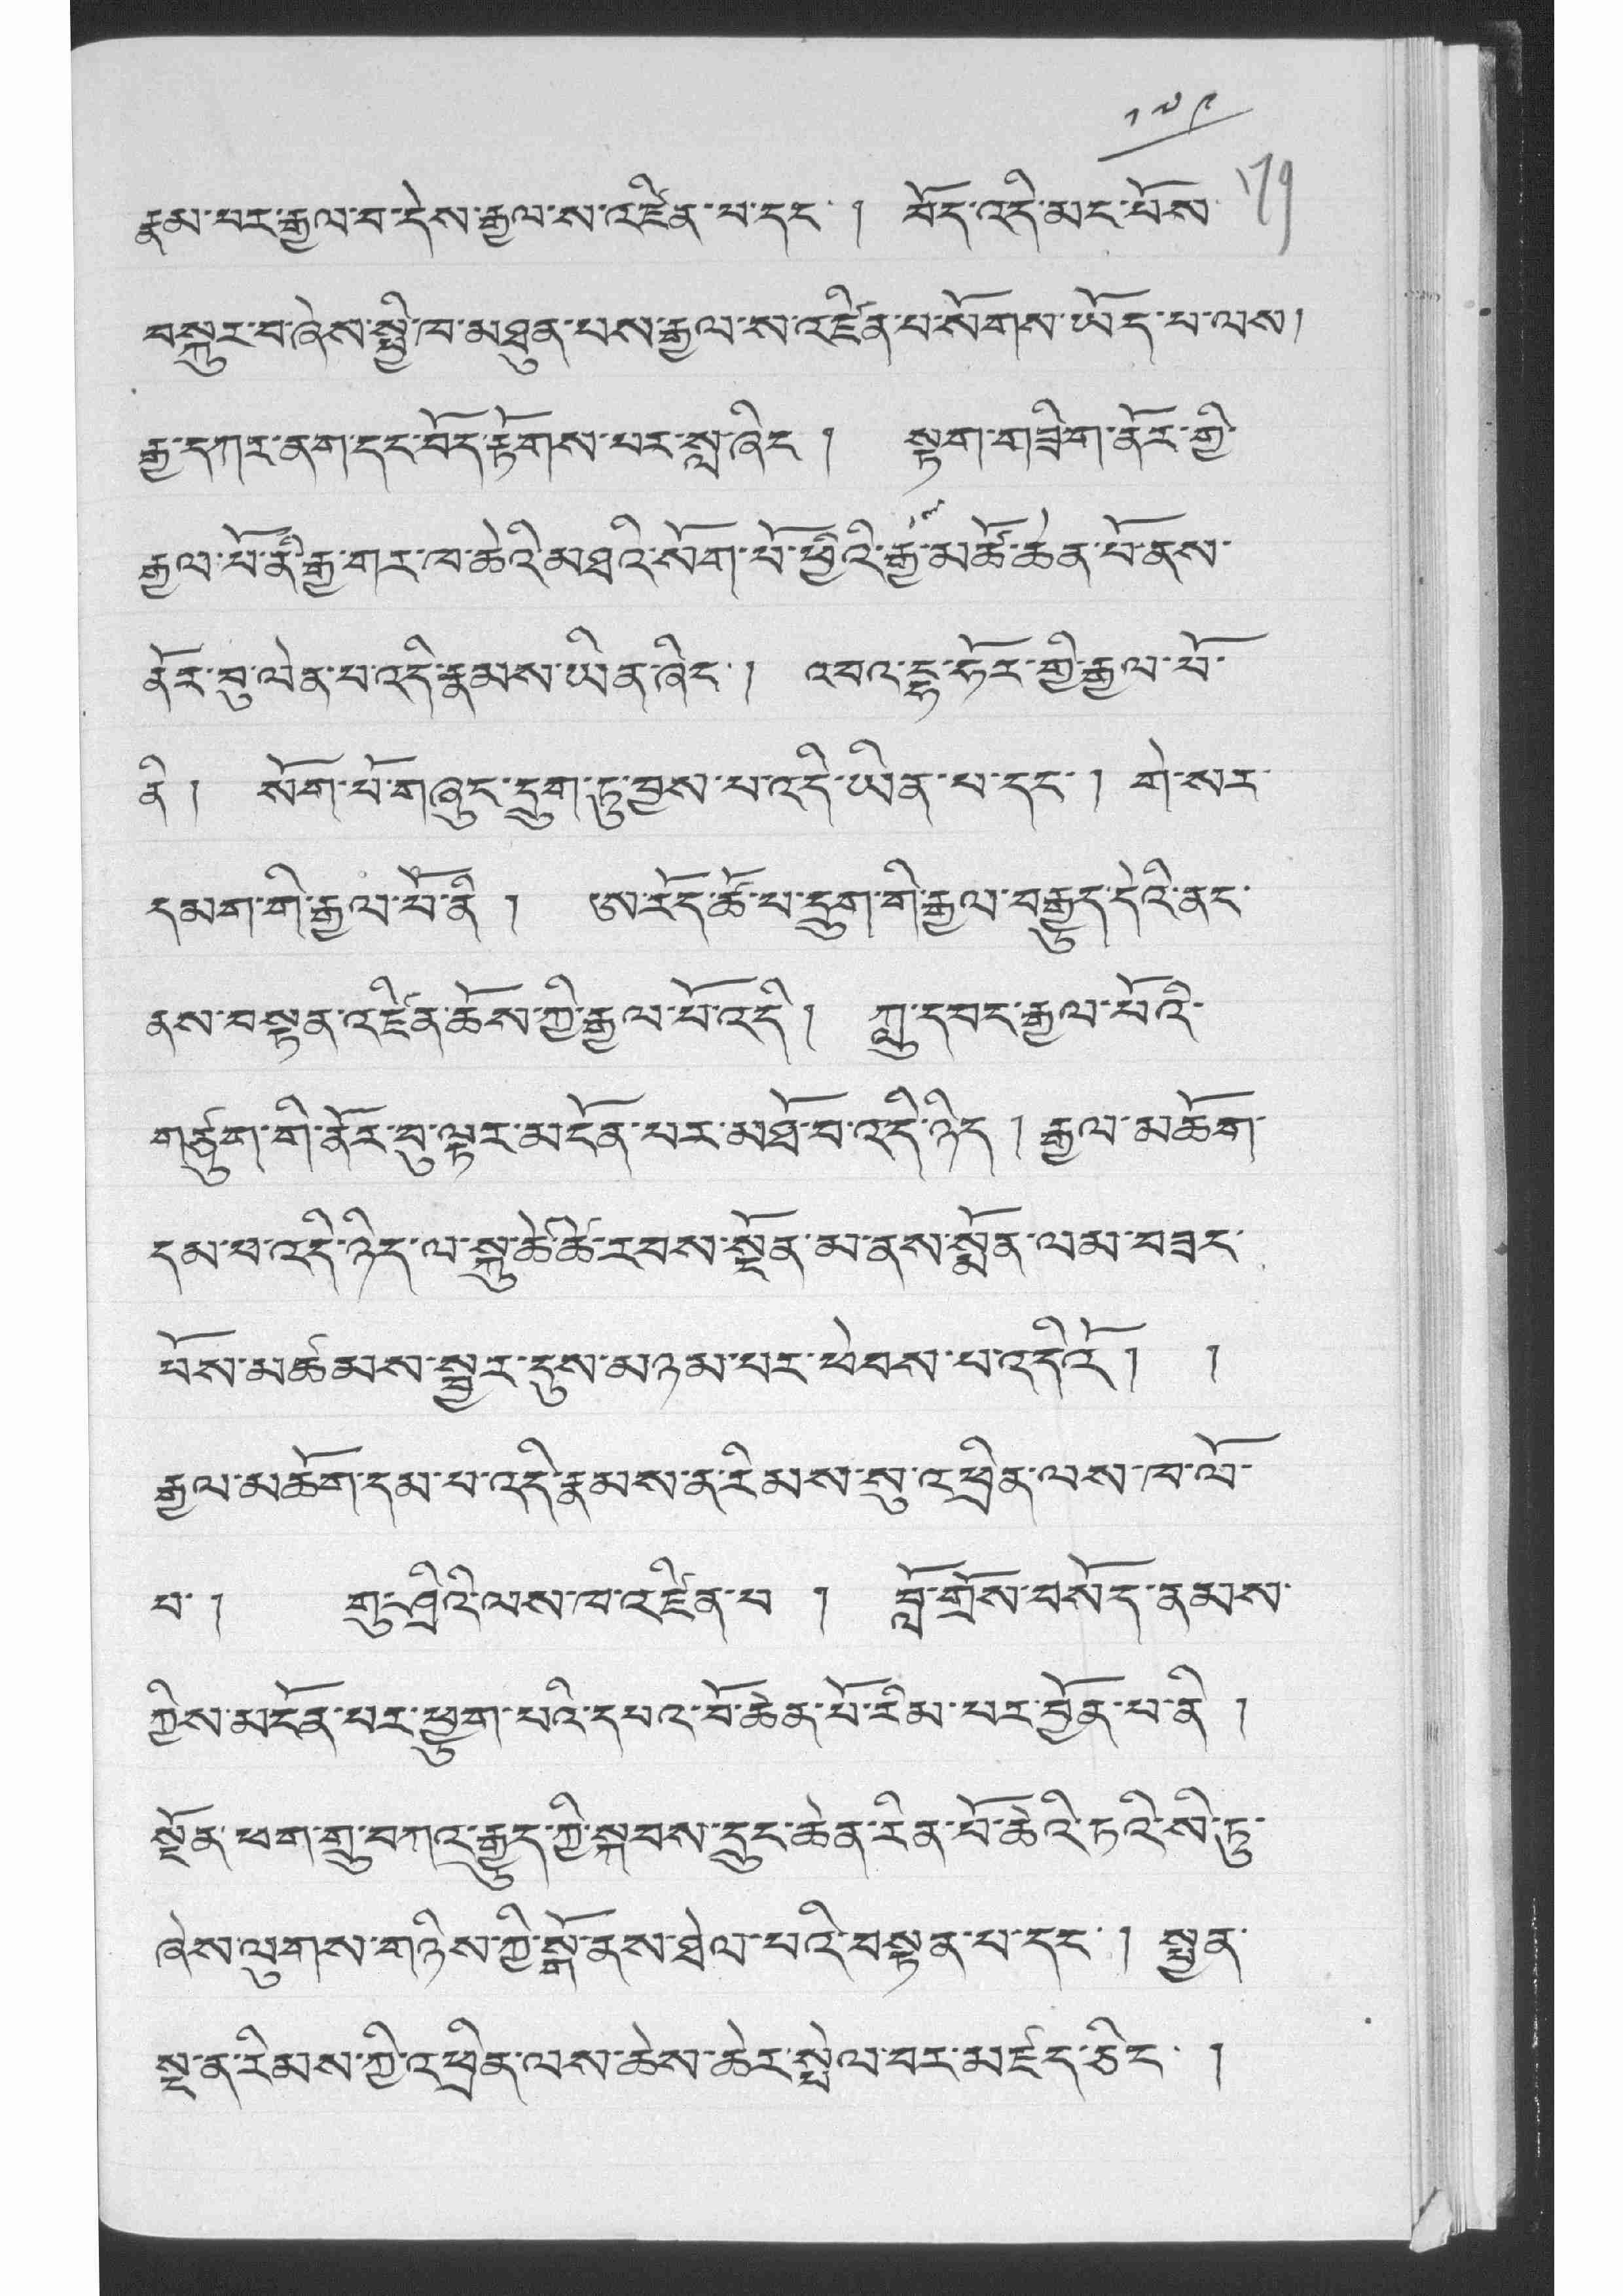 ༡༧༩
79
རྣམ་པར་རྒྱལ་བ་དེས་རྒྱལ་ས་འཛིན་པ་དང་། བོད་འདི་མང་པོས་
བསྐུར་བ་ཞེས་སྤྱི་ཁ་མཐུན་པས་རྒྱལ་ས་འཛིན་པ་སོགས་ཡོད་པ་ལས།
རྒྱ་དཀར་ནག་དང་བོད་རྟོགས་པར་སླ་ཞིང་། སྟག་གཟིག་ནོར་གྱི་
རྒྱལ་པོ་ནི་རྒྱ་གར་ཁ་ཆེའི་མཐའི་སོག་པོ་ཕྱིའི་རྒྱ་མཚོ་ཆེན་པོ་ནས་
ནོར་བུ་ལེན་པ་འདི་རྣམས་ཡིན་ཞིང་། འབའ་ཌ་ཧོར་གྱི་རྒྱལ་པོ་
ནི། སོག་པོ་གཞུང་དྲུག་ཏུ་བྱས་པ་འདི་ཡིན་པ་དང་། གེ་སར་
དམག་གི་རྒྱལ་པོ་ནི། ཨ་རོད་ཚོ་པ་དྲུག་གི་རྒྱལ་བརྒྱུད་དེའི་ནང་
ནས་བསྟན་འཛིན་ཆོས་ཀྱི་རྒྱལ་པོ་འདི། ཀླུ་དབང་རྒྱལ་པོའི་
གཙུག་གི་ནོར་བུ་ལྟར་མངོན་པར་མཐོ་བ་འདི་ཉིད། རྒྱལ་མཆོག་
དམ་པ་འདི་ཉིད་ལ་སྐུ་ཚེ་ཚེ་རབས་སྔོན་མ་ནས་སྨོན་ལམ་བཟང་
པོས་མཚམས་སྦྱར་དུས་མཉམ་པར་ཕེབས་པ་འདིའོ། །
རྒྱལ་མཆོག་དམ་པ་འདི་རྣམས་ན་རིམས་སུ་འཕྲིན་ལས་ཁ་ལོ་
པ་། གུ་ཤྲཱིའི་ལས་ཁ་འཛིན་པ། བློ་གྲོས་བསོད་ནམས་
ཀྱིས་མངོན་པར་ཕྱུག་པའི་དཔའ་བོ་ཆེན་པོ་རིམ་པར་བྱོན་པ་ནི།
སྔོན་ཕག་གྲུ་བཀའ་རྒྱུད་ཀྱི་སྐབས་དྲུང་ཆེན་རིན་པོ་ཆེའི་ཏའི་སི་ཏུ་
ཞེས་ལུགས་གཉིས་ཀྱི་སྒོ་ནས་ཐེལ་པའི་བསྟན་པ་དང་། སྤྱན་
སྔ་ན་རིམས་ཀྱི་འཕྲིན་ལས་ཆེས་ཆེར་སྤེལ་བར་མཛད་ཅིང་།